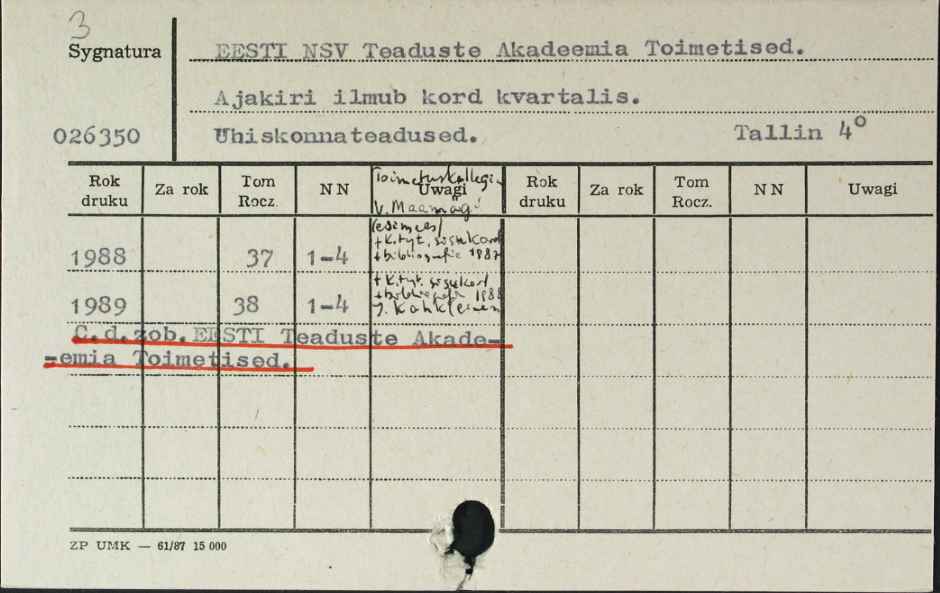 3
Sygnatura
EESTI NSV Teaduste Akadeemia Toimetised.
Ajakiri ilmub kord kvartalis.
026350 Uhiskonnateadused. Tallin 4º
Rok druku Za rok Tom Rocz. N N Uwagi Rok druku Za rok Tom Rocz. N N Uwagi
Toimetuskollegi.
V. Maamägi
(esimees)
+ K.tyt. sisukord
+ bibliografie 1987
1988 37 1-4
+ K.tyt. sisukord
+ bibliografia 1988
1989 38 1-4
C.d.zob. EESTI Teaduste Akade-
-emia Toimetised.
ZP UMK — 61/87 15 000